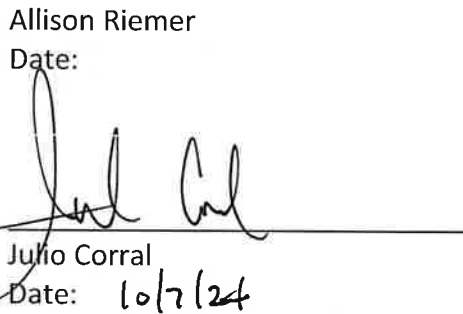 Allison Riemer
Date:
Julio Corral
Date: 10/7/24